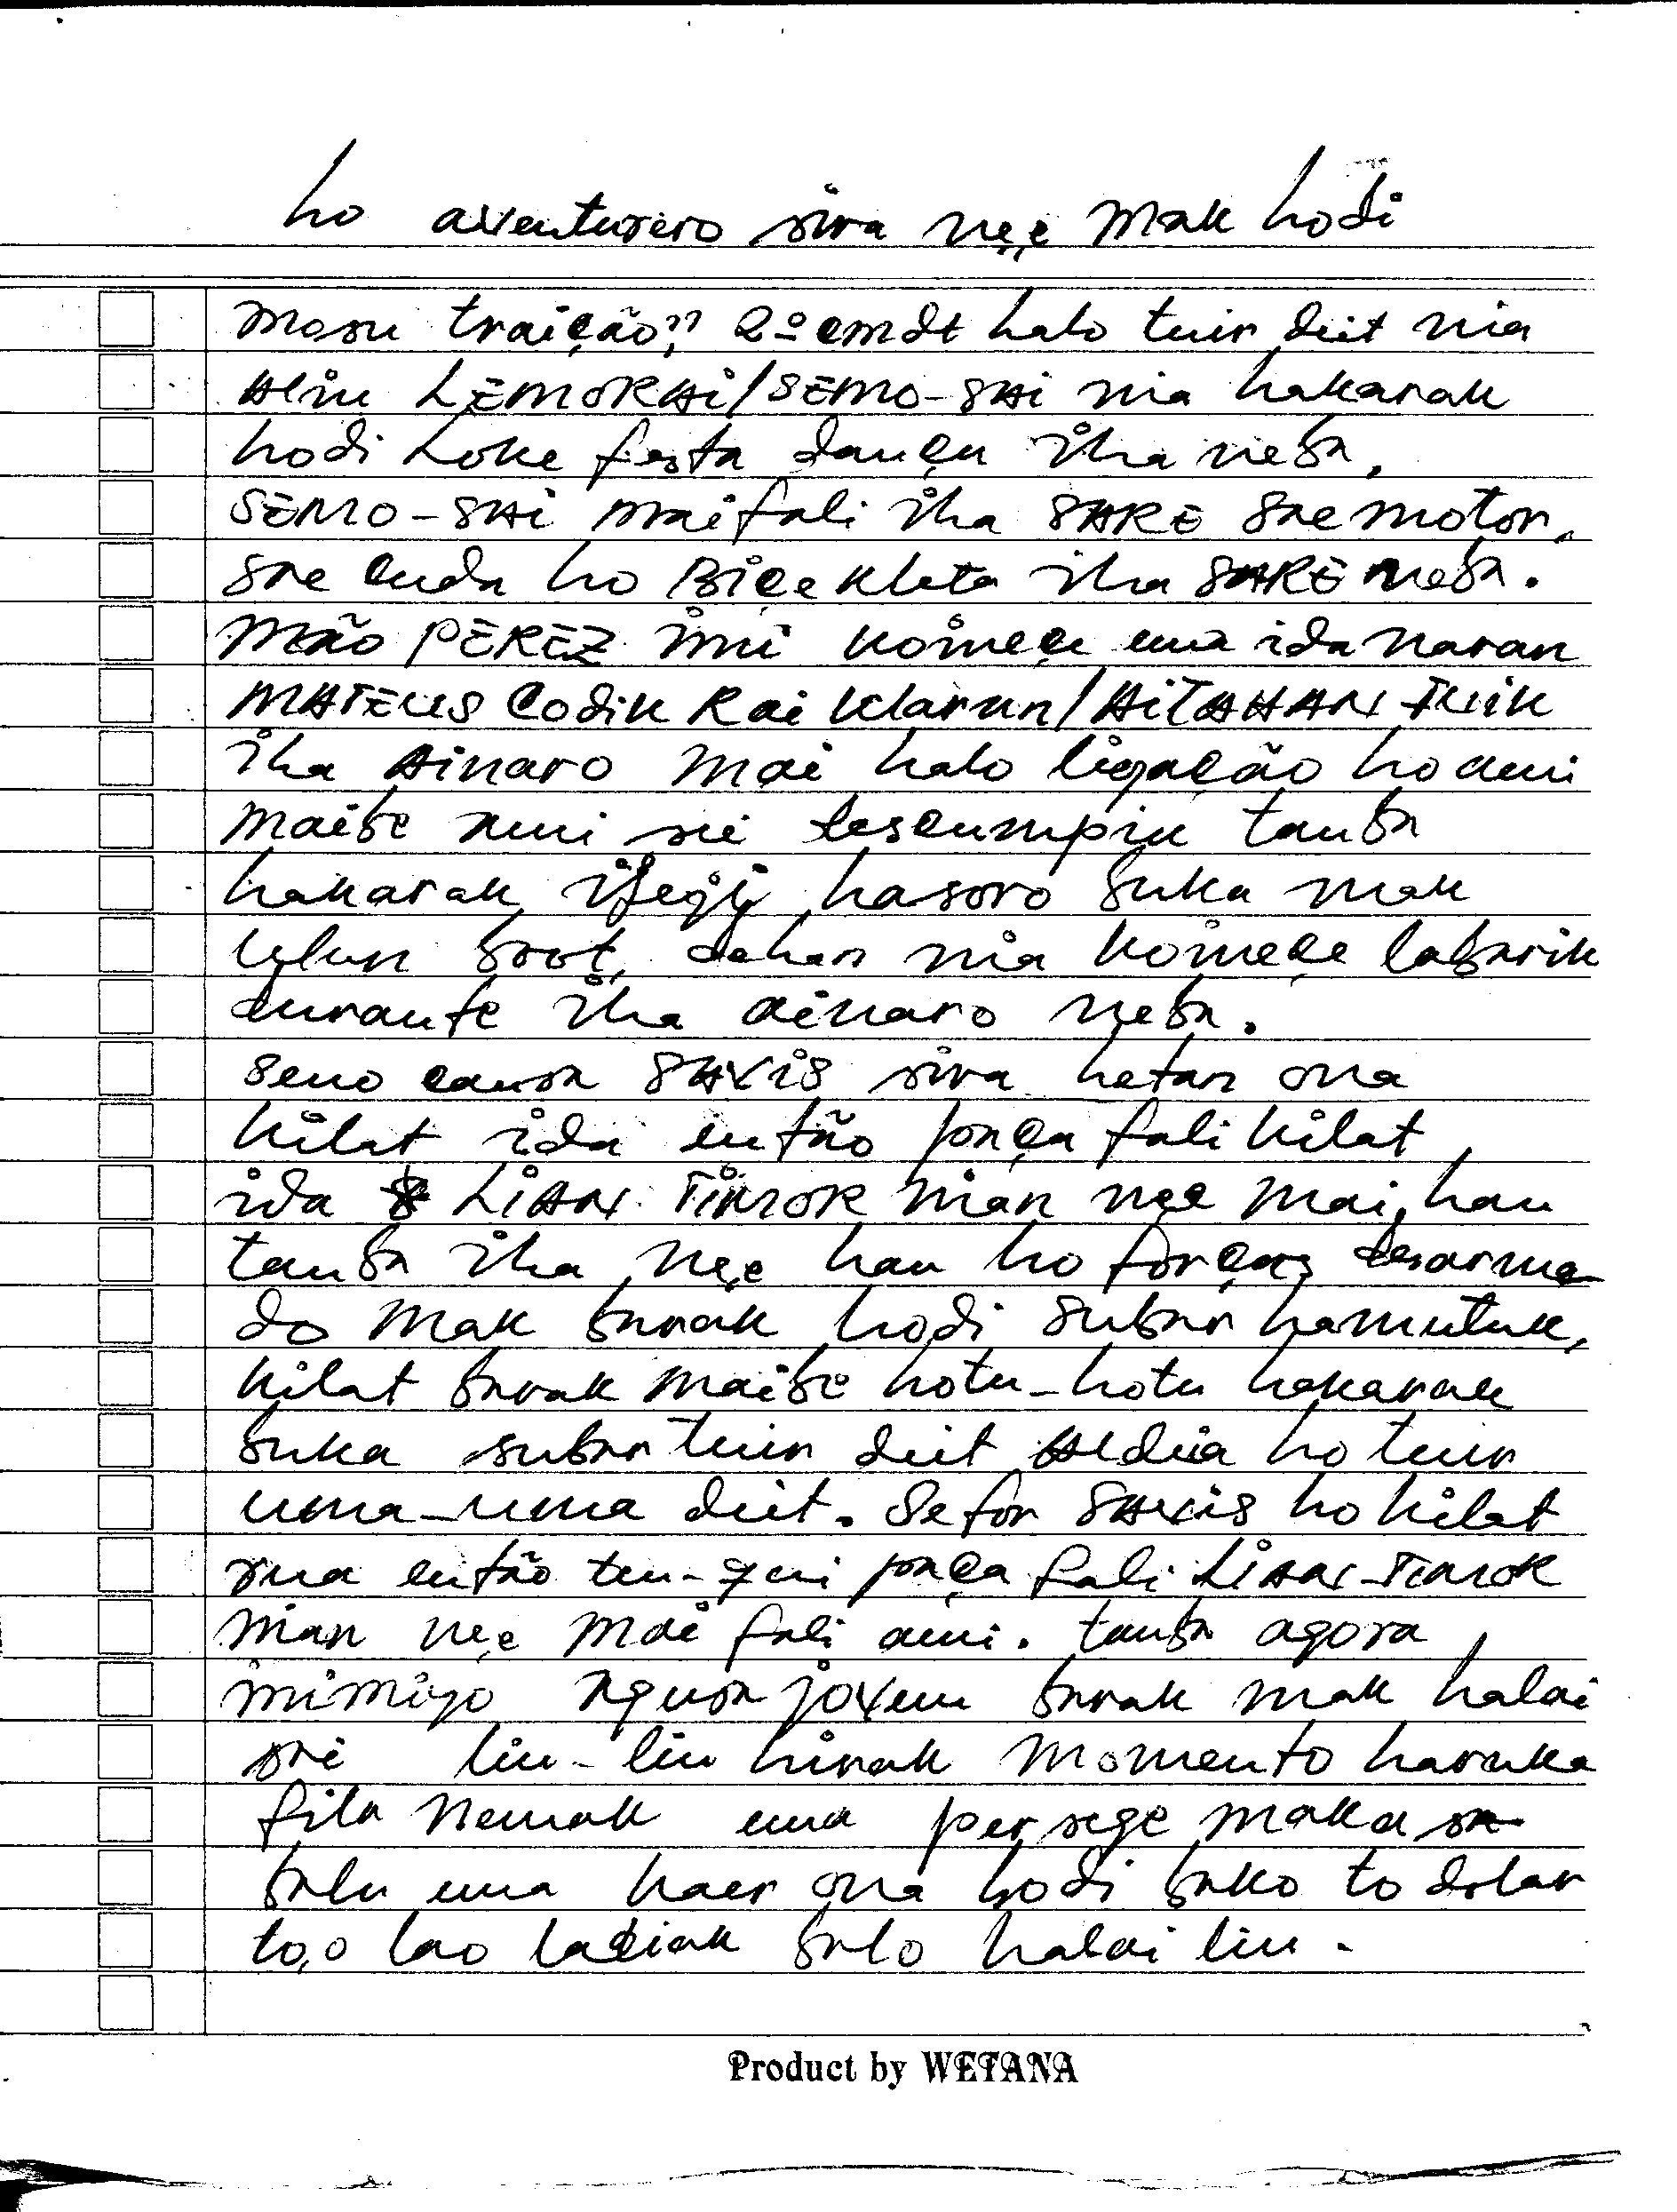 ho aventurero sira ne,e mak hodi
mosu traição," 2º cmdt halo tuir deit nia
Alin LEMORAI/SEMO-SAI nia hakarak
hodi Loke festa dança iha neba,
SEMO-SAI mai fali iha SARE sae motor,
sae cuda ho Biçekleta iha SARE neba.
Mão PEREZ imi komeçe ema ida naran
MATEUS Codik Rai klarun/AITAHAN TUIK
iha Ainaro mai halo ligação ho ami
maibe ami sei descumpriu tamba
hakarak, hasoro buka mak
Ulun boot, dehan nia komeçe labarik
durante iha ainaro neba.
Seno causa SAXIS sira hetan ona
kilat ida então força fali kilat
ida LIAN TIMOR nian ne,e mai, hau
tamba iha ne,e hau ho forças desarma-
do mak barak hodi subar hamutuk,
kilat barak maibe hotu-hotu hakarak
buka subar tuir deit Aldeia ho tuir
uma-uma deit. Se for SAXIS ho kilat
rua então ten-qui força fali LIAN-TIMOR
nian ne,e mai fali ami. tamba agora
inimigo agusa jovem barak mak halai
sai liu-liu hirak momento haruka
fila nemak ema persege maka sa
balu ema kaer ona hodi buko to dolar
to,o lao ladiak balo halai liu.
Product by WETANA